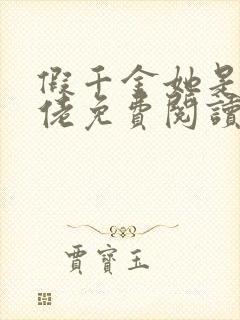 假千金她是
佬免費閱讀
賈寶玉